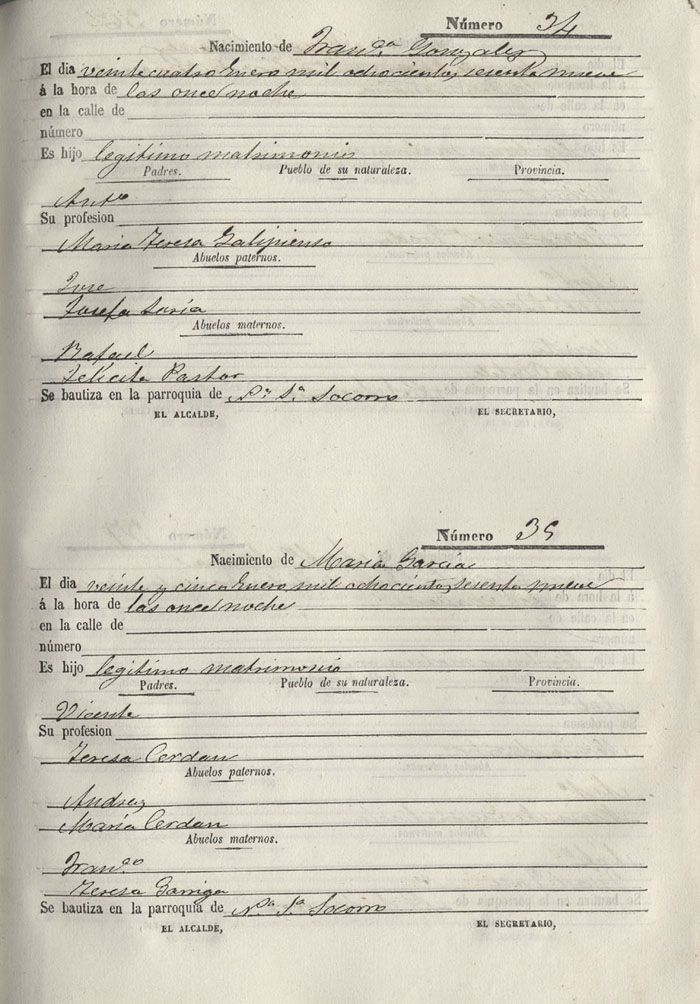 Número 34
Nacimiento de Fran.ca Gonzalez
El dia veinte cuatro Enero mil ochocientos sesenta nueve
á la hora de las once noche
en la calle de
número
Es hijo legitimo matrimonio
Padres. Pueblo de su naturaleza. Provincia.
Ant.o
Su profesion
Maria Teresa Galipienso
Abuelos paternos.
Jose
Josefa Suria
Abuelos maternos.
Rafael
Felicita Pastor
Se bautiza en la parroquia de N.a S.a Socorro
EL ALCALDE, EL SECRETARIO,
Número 35
Nacimiento de Maria Garcia
El dia veinte y cinco Enero mil ochocientos sesenta nueve
á la hora de las once noche
en la calle de
número
Es hijo legitimo matrimonio
Padres. Pueblo de su naturaleza. Provincia.
Vicente
Su profesion
Teresa Cerdan
Abuelos paternos.
Andres
Maria Cerdan
Abuelos maternos.
Fran.co
Teresa Garriga
Se bautiza en la parroquia de N.a S.a Socorro
EL ALCALDE, EL SECRETARIO,